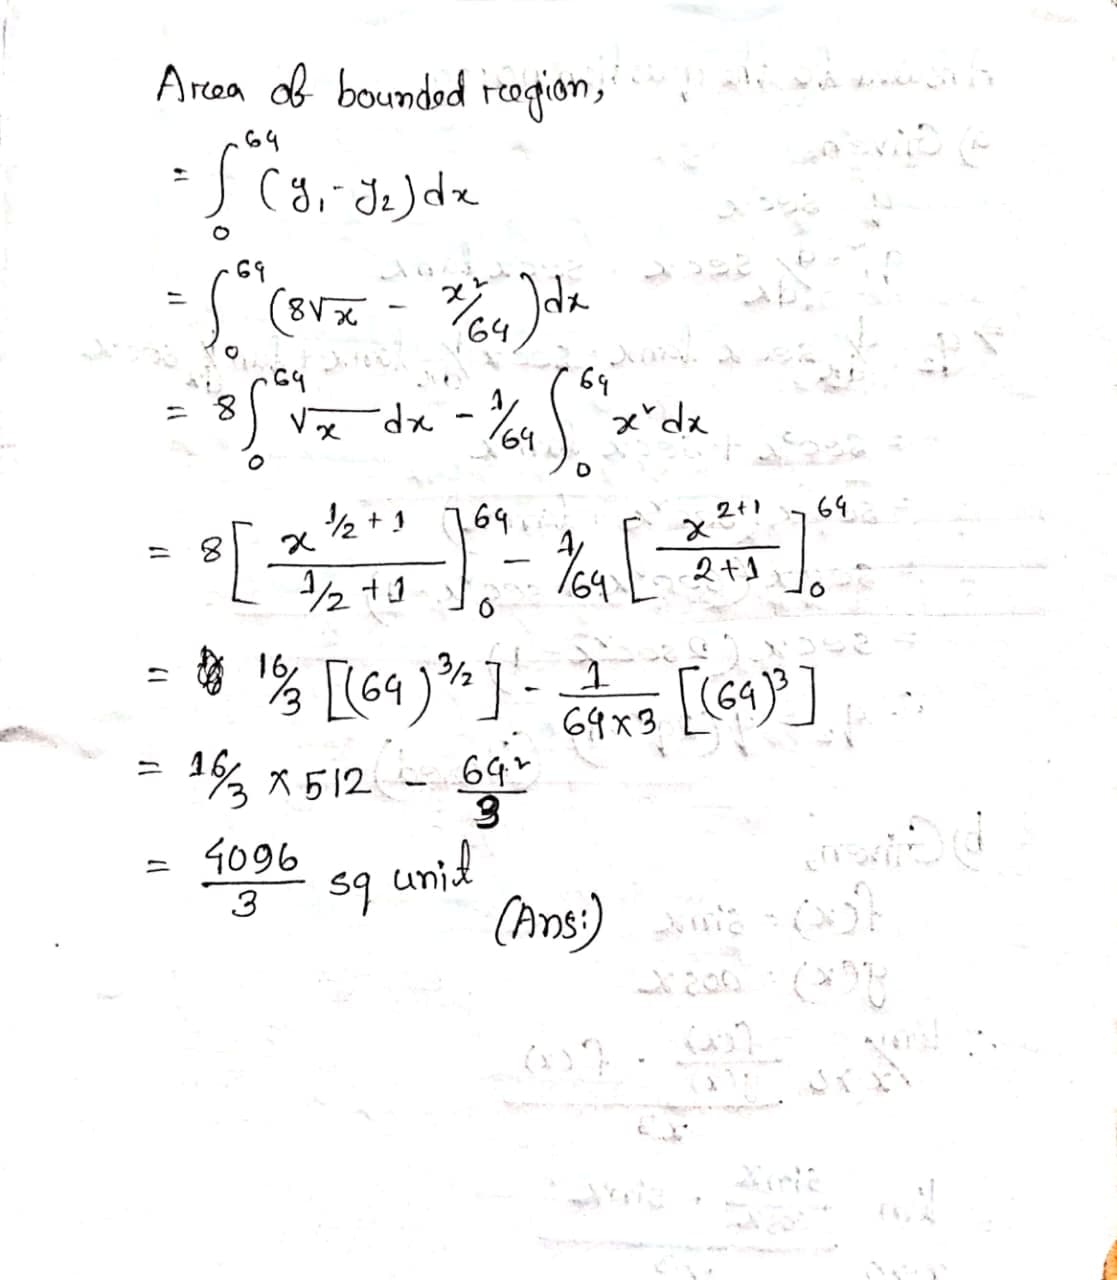 Area of bounded region,
= ∫₀⁶⁴ (y₁ - y₂) dx
= ∫₀⁶⁴ (8√x - x²/64) dx
= 8 ∫₀⁶⁴ √x dx - 1/64 ∫₀⁶⁴ x² dx
= 8 [ x^(1/2 + 1) / (1/2 + 1) ]₀⁶⁴ - 1/64 [ x^(2+1) / (2+1) ]₀⁶⁴
= 16/3 [(64)^(3/2)] - 1/(64×3) [(64)³]
= 16/3 × 512 - 64²/3
= 4096/3 sq unit
(Ans:)